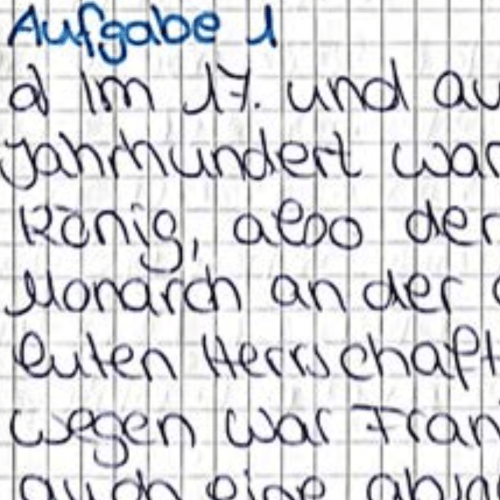 Aufgabe 1
a) Im 17. und au
Jahrhundert war
König, also der
Monarch an der
luten Herrschaft
wegen war Fran
auch eine abso